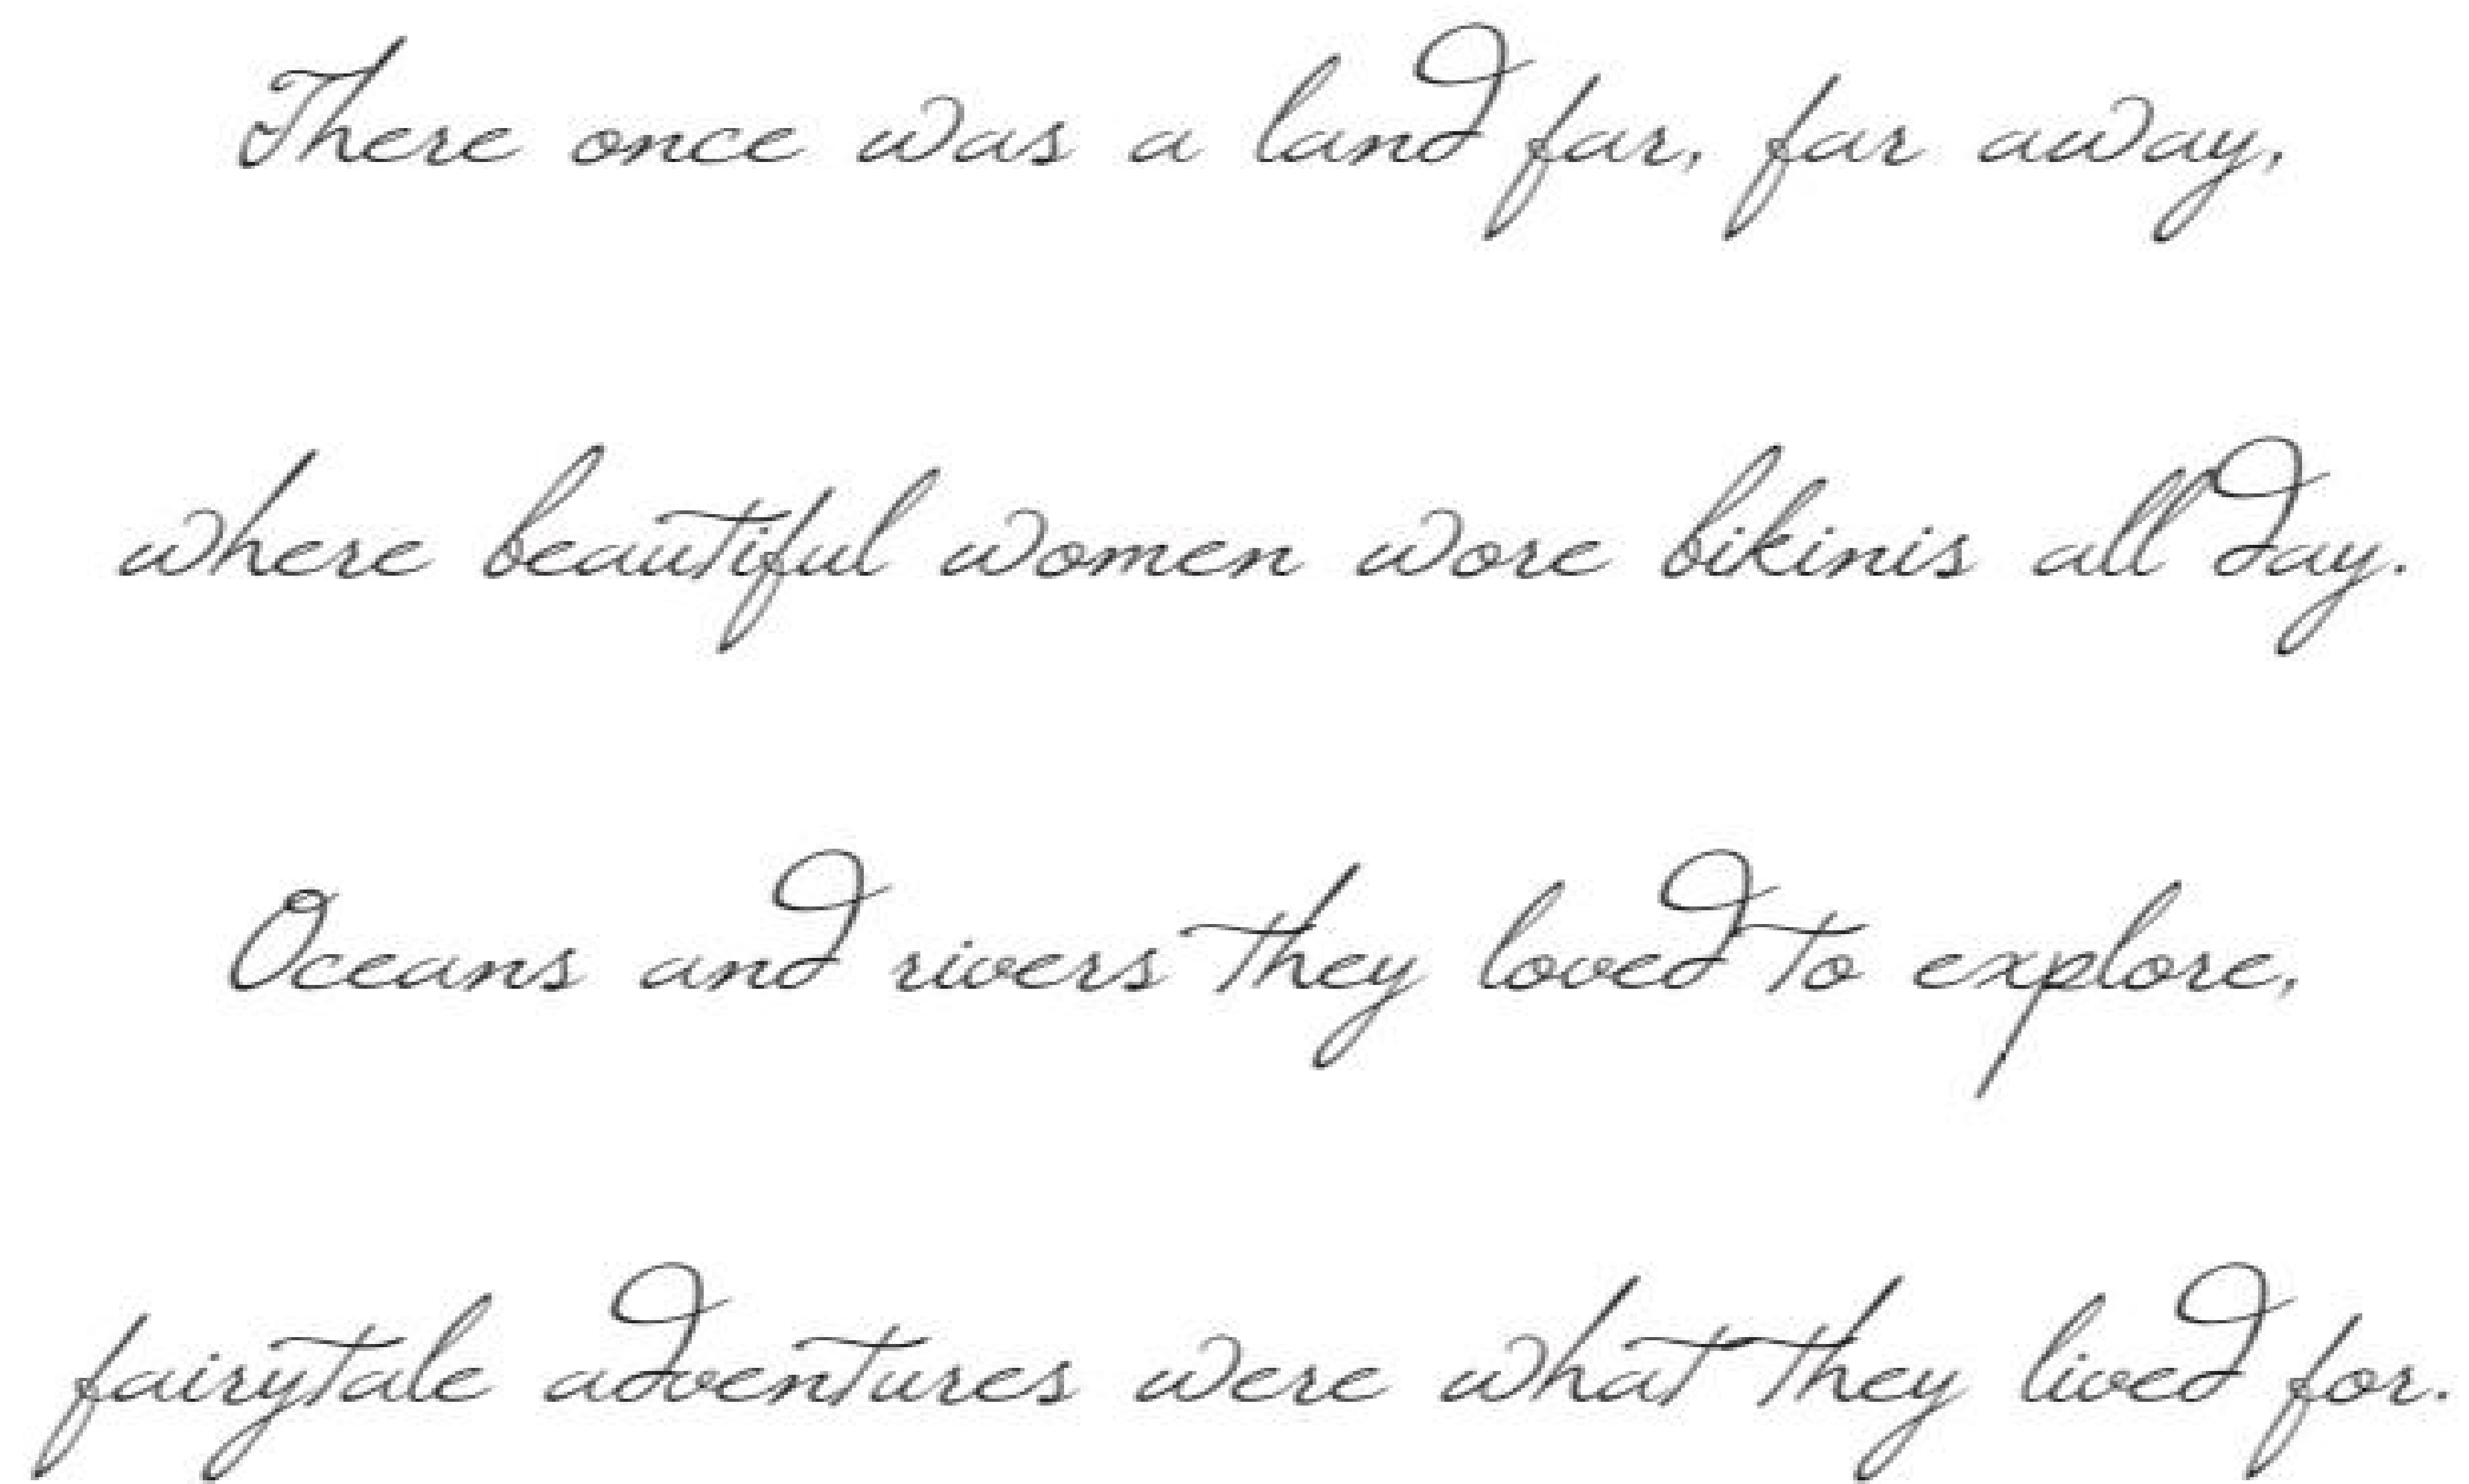 There once was a land far, far away,
where beautiful women wore bikinis all day.
Oceans and rivers they loved to explore,
fairytale adventures were what they lived for.